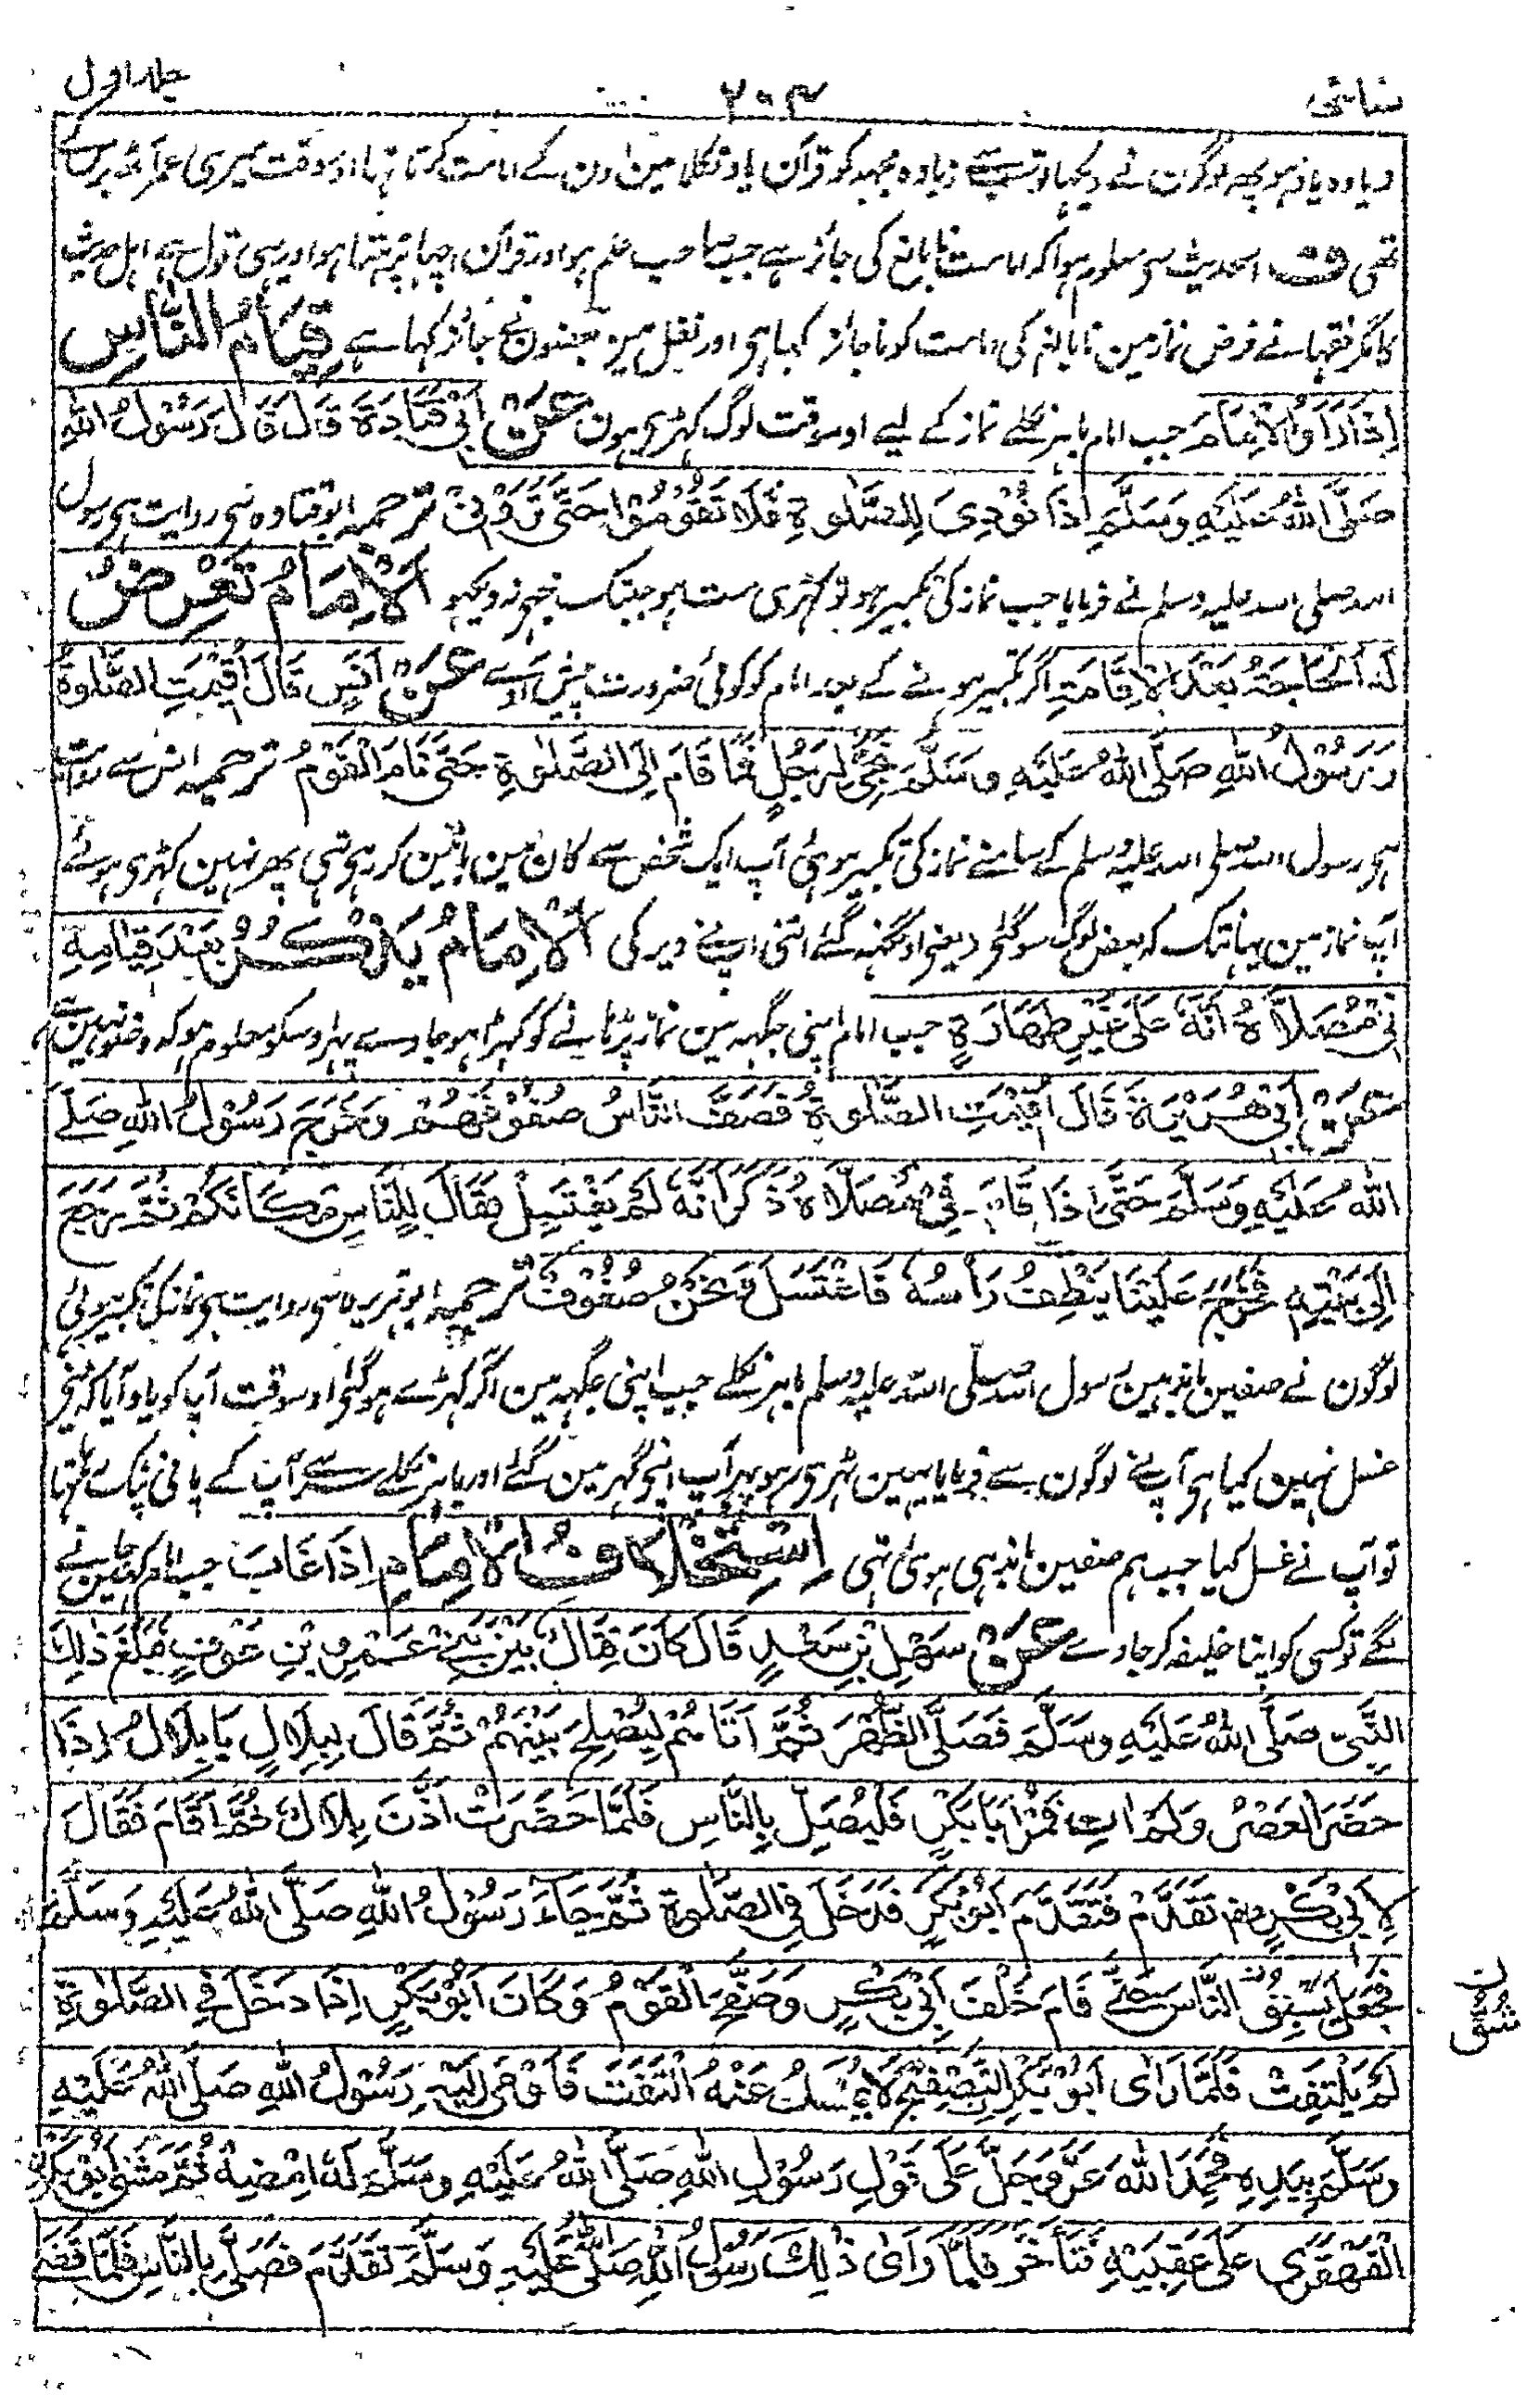 نسائی ۲۰۴ جلد اول
زیادہ یاد ہو پھر لوگون نے دیکھا تو سب سے زیادہ مجہہ کو قرآن یاد نکلا مین اون کے امامت کرتا تہا اوسوقت میری عمر آٹھ برس کے
تھی ف اسحدیث سی معلوم ہوا کہ امامت نابالغ کی جائز ہے جب صاحب علم ہو اور قرآن اچہا پڑہتا ہو اور یہی قول ہے اہل حدیث
کا مگر فقہا نے فرض نماز مین نابالغ کی امامت کو ناجائز کہا ہی اور نفل مین بعضون نے جائز کہا ہے قِيَامُ النَّاسِ
اِذَا رَاَوُا الْاِمَامَ جب امام باہر نکلے نماز کے لیے اوسوقت لوگ کہڑی ہون عَنْ اَبِیْ قَتَادَةَ قَالَ قَالَ رَسُوْلُ اللهِ
صَلَّى اللهُ عَلَيْهِ وَسَلَّمَ اِذَا نُوْدِیَ لِلصَّلٰوةِ فَلَا تَقُوْمُوْا حَتّٰى تَرَوْنِیْ ترجمہ ابوقتادہ سی روایت ہی رسول
اللہ صلی اللہ علیہ وسلم نے فرمایا جب نماز کی تکبیر ہو تو کہڑی مت ہو جبتک مجہی نہ دیکہو اَلْاِمَامُ تَعْرِضُ
لَهُ الْحَاجَةُ بَعْدَ الْاِقَامَةِ اگر تکبیر ہونے کے بعد امام کو کوئی ضرورت پیش آوے عَنْ اَنَسٍ قَالَ اُقِيْمَتِ الصَّلٰوةُ
وَرَسُوْلُ اللهِ صَلَّى اللهُ عَلَيْهِ وَسَلَّمَ نَجِیٌّ لِرَجُلٍ فَمَا قَامَ اِلَى الصَّلٰوةِ حَتّٰى نَامَ الْقَوْمُ ترجمہ انس سے روایت
ہی رسول اللہ صلی اللہ علیہ وسلم کے سامنے نماز کی تکبیر ہوئی آپ ایک شخص سے کان مین باتین کر رہی تہی پھر نہین کہڑی ہوئے
آپ نماز مین یہانتک کہ بعض لوگ سو گئی (یعنی اونگہنہ گئے) اتنی اپنے دیر کی اَلْاِمَامُ يَذْكُرُ بَعْدَ قِيَامِهِ
فِیْ مُصَلَّاهُ اَنَّهُ عَلٰى غَيْرِ طَهَارَةٍ جب امام اپنی جگہہ مین نماز پڑہانے کو کہڑا ہو جاوے پہر اوسکو معلوم ہو کہ وضو نہین ہے
عَنْ اَبِیْ هُرَيْرَةَ قَالَ اُقِيْمَتِ الصَّلٰوةُ فَصَفَّ النَّاسُ صُفُوْفَهُمْ وَخَرَجَ رَسُوْلُ اللهِ صَلَّى
اللهُ عَلَيْهِ وَسَلَّمَ حَتّٰى اِذَا قَامَ فِیْ مُصَلَّاهُ ذَكَرَ اَنَّهُ لَمْ يَغْتَسِلْ فَقَالَ لِلنَّاسِ مَكَانَكُمْ ثُمَّ رَجَعَ
اِلٰى بَيْتِهِ فَخَرَجَ عَلَيْنَا يَنْطِفُ رَاْسُهُ فَاغْتَسَلَ وَنَحْنُ صُفُوْفٌ ترجمہ ابوہریرہ سی روایت ہی نماز کی تکبیر ہوئی
لوگون نے صفین باندہین رسول اللہ صلی اللہ علیہ وسلم باہر نکلے جب اپنی جگہہ مین آکر کہڑے ہو گئی اوسوقت آپ کو یاد آیا کہ مینی
غسل نہین کیا ہی آپ نے لوگون سے فرمایا یہین ٹہری رہو پہر آپ اپنی گہر مین گئے اور باہر نکلے سر سے آپ کے پانی ٹپک رہا تہا
تو آپ نے غسل کیا جب ہم صفین باندہی ہوئی تہی اِسْتِخْلَافُ الْاِمَامِ اِذَا غَابَ جب امام کہین جانے
لگے تو کسی کو اپنا خلیفہ کر جاوے عَنْ سَهْلِ بْنِ سَعْدٍ قَالَ كَانَ قِتَالٌ بَيْنَ بَنِیْ عَمْرِو بْنِ عَوْفٍ فَبَلَغَ ذٰلِكَ
النَّبِیَّ صَلَّى اللهُ عَلَيْهِ وَسَلَّمَ فَصَلَّى الظُّهْرَ ثُمَّ اَتَاهُمْ لِيُصْلِحَ بَيْنَهُمْ ثُمَّ قَالَ لِبِلَالٍ يَا بِلَالُ اِذَا
حَضَرَ الْعَصْرُ وَلَمْ اٰتِ فَمُرْ اَبَا بَكْرٍ فَلْيُصَلِّ بِالنَّاسِ فَلَمَّا حَضَرَتْ اَذَّنَ بِلَالٌ ثُمَّ اَقَامَ فَقَالَ
لِاَبِیْ بَكْرٍ تَقَدَّمْ فَتَقَدَّمَ اَبُوْ بَكْرٍ فَدَخَلَ فِی الصَّلٰوةِ ثُمَّ جَاءَ رَسُوْلُ اللهِ صَلَّى اللهُ عَلَيْهِ وَسَلَّمَ
فَجَعَلَ يَشُقُّ النَّاسَ حَتّٰى قَامَ خَلْفَ اَبِیْ بَكْرٍ وَصَفَّحَ الْقَوْمُ وَكَانَ اَبُوْ بَكْرٍ اِذَا دَخَلَ فِی الصَّلٰوةِ
لَمْ يَلْتَفِتْ فَلَمَّا رَاٰى اَبُوْ بَكْرٍ التَّصْفِيْحَ لَا يُمْسَكُ عَنْهُ الْتَفَتَ فَاَوْمٰى اِلَيْهِ رَسُوْلُ اللهِ صَلَّى اللهُ عَلَيْهِ
وَسَلَّمَ بِيَدِهِ فَحَمِدَ اللهَ عَزَّ وَجَلَّ عَلٰى قَوْلِ رَسُوْلِ اللهِ صَلَّى اللهُ عَلَيْهِ وَسَلَّمَ لَهُ امْضِهْ ثُمَّ مَشٰى اَبُوْ بَكْرٍ
الْقَهْقَرٰى عَلٰى عَقِبَيْهِ فَتَاَخَّرَ فَلَمَّا رَاٰى ذٰلِكَ رَسُوْلُ اللهِ صَلَّى اللهُ عَلَيْهِ وَسَلَّمَ تَقَدَّمَ فَصَلّٰى بِالنَّاسِ فَلَمَّا قَضٰى
ن
شُقُّ